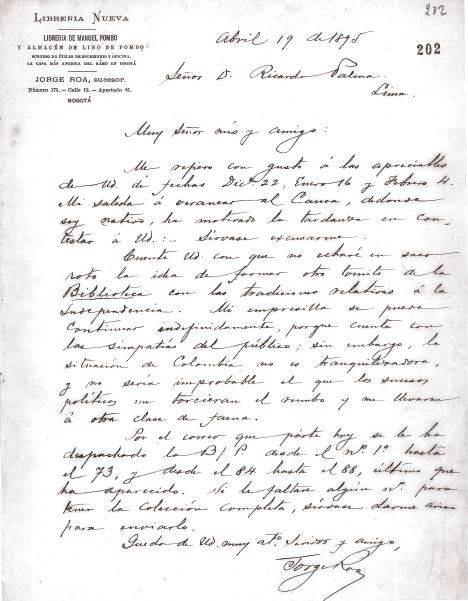 202
LIBRERIA NUEVA
LIBRERIA DE MANUEL POMBO
Y ALMACÉN DE LINO DE POMBO
SURTIDO DE ÚTILES DE ESCRITORIO Y OFICINA,
LA CASA MÁS ANTIGUA DEL RAMO EN BOGOTÁ
JORGE ROA, sucesor.
Número 171.—Calle 12.—Apartado 81.
BOGOTÁ
Abril 19 de 1895
202
Señor D. Ricardo Palma
Lima.
Muy Señor mío y amigo:
Me refiero con gusto á las apreciables
de Ud. de fechas Dicbe. 22, Enero 16 y Febrero 4.
Mi salida á veranear al Cauca, de donde
soy nativo, ha motivado la tardanza en con-
testar á Ud:— Sírvase excusarme.
Cuente Ud con que no echaré en saco
roto la idea de formar otro tomito de la
Biblioteca con las tradiciones relativas á la
Independencia. Mi empresilla se puede
continuar indefinidamente, porque cuenta con
las simpatías del público; sin embargo, la
situación de Colombia no es tranquilizadora,
y no sería improbable el que los sucesos
políticos me torcieran el rumbo y me llevaran
á otra clase de faena.
Por el correo que párte hoy se le ha
despachado la B/ P desde el n.º 1º hasta
el 73, y desde el 84 hasta el 88, último que
ha aparecido. Si le faltare algún nº. para
tener la Colección completa, sírvase darme aviso
para enviarlo.
Quedo de Ud. muy atº. Servidor y amigo,
Jorge Roa